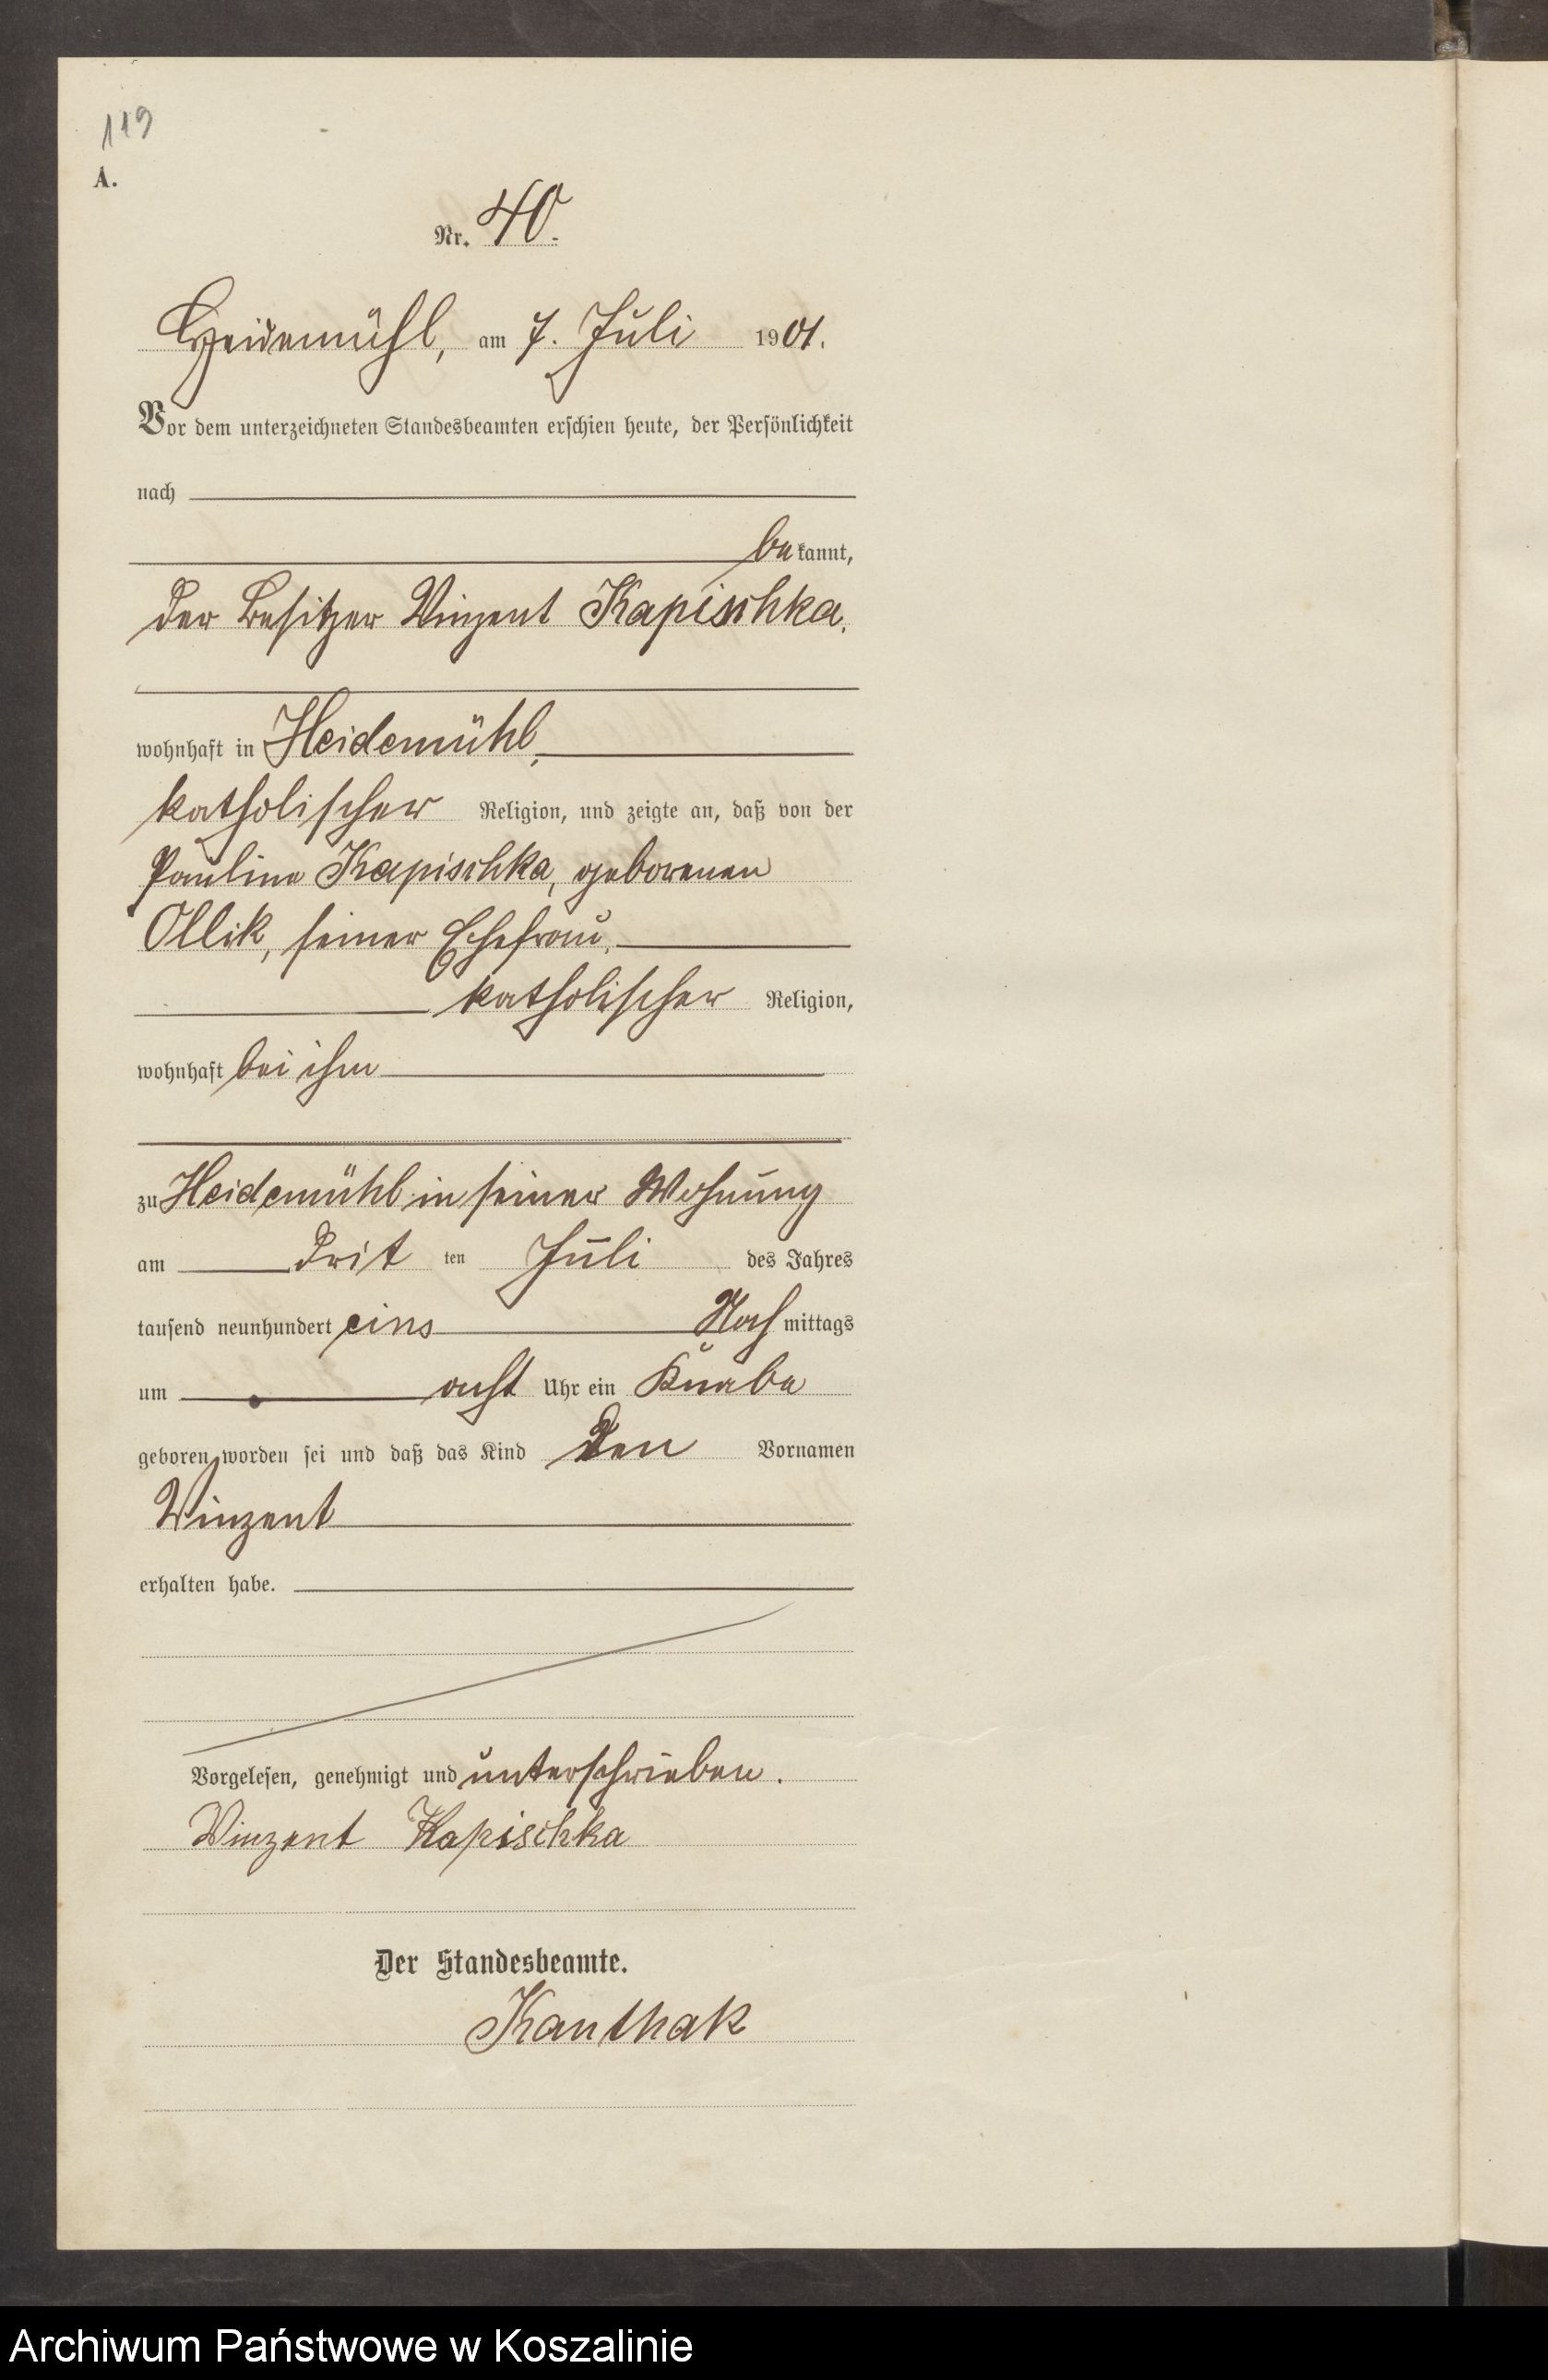 119
A.
Nr. 40.
Heidemühl, am 7. Juli 1901.
Vor dem unterzeichneten Standesbeamten erschien heute, der Persönlichkeit
nach
bekannt,
der Besitzer Vinzent Kapischka,
wohnhaft in Heidemühl,
katholischer Religion, und zeigte an, daß von der
Pauline Kapischka, geborenen
Ollik, seiner Ehefrau,
katholischer Religion,
wohnhaft bei ihm
zu Heidemühl in seiner Wohnung
am dritten Juli des Jahres
tausend neunhundert eins Nachmittags
um acht Uhr ein Knabe
geboren worden sei und daß das Kind den Vornamen
Vinzent
erhalten habe.
Vorgelesen, genehmigt und unterschrieben.
Vinzent Kapischka
Der Standesbeamte.
Kanthak
Archiwum Państwowe w Koszalinie